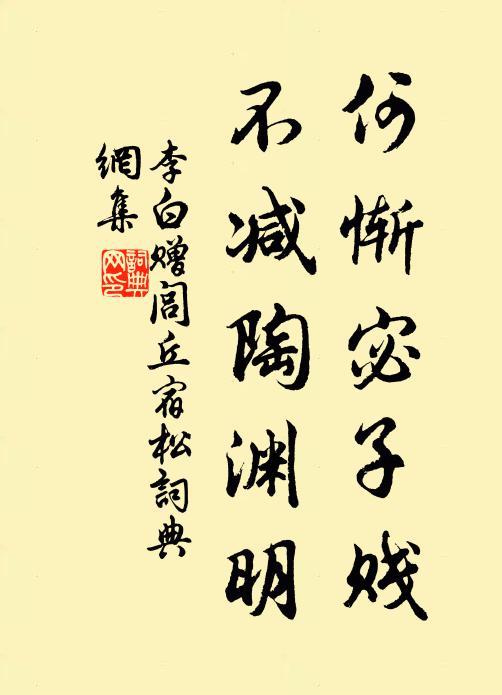 何惭宓子贱
不减陶渊明
李白赠闾丘宿松詞典
網集
詞典
网印